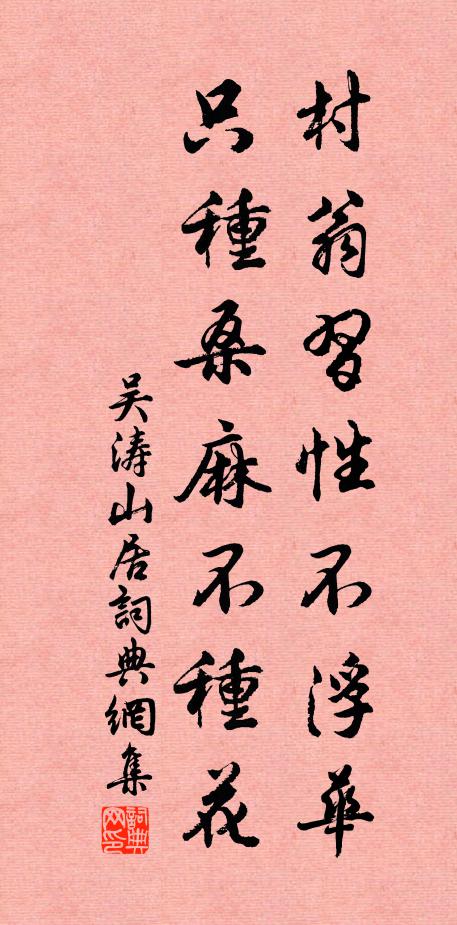 村翁習性不浮華
只種桑麻不種花
吴濤山居詞典網集
詞典
网印